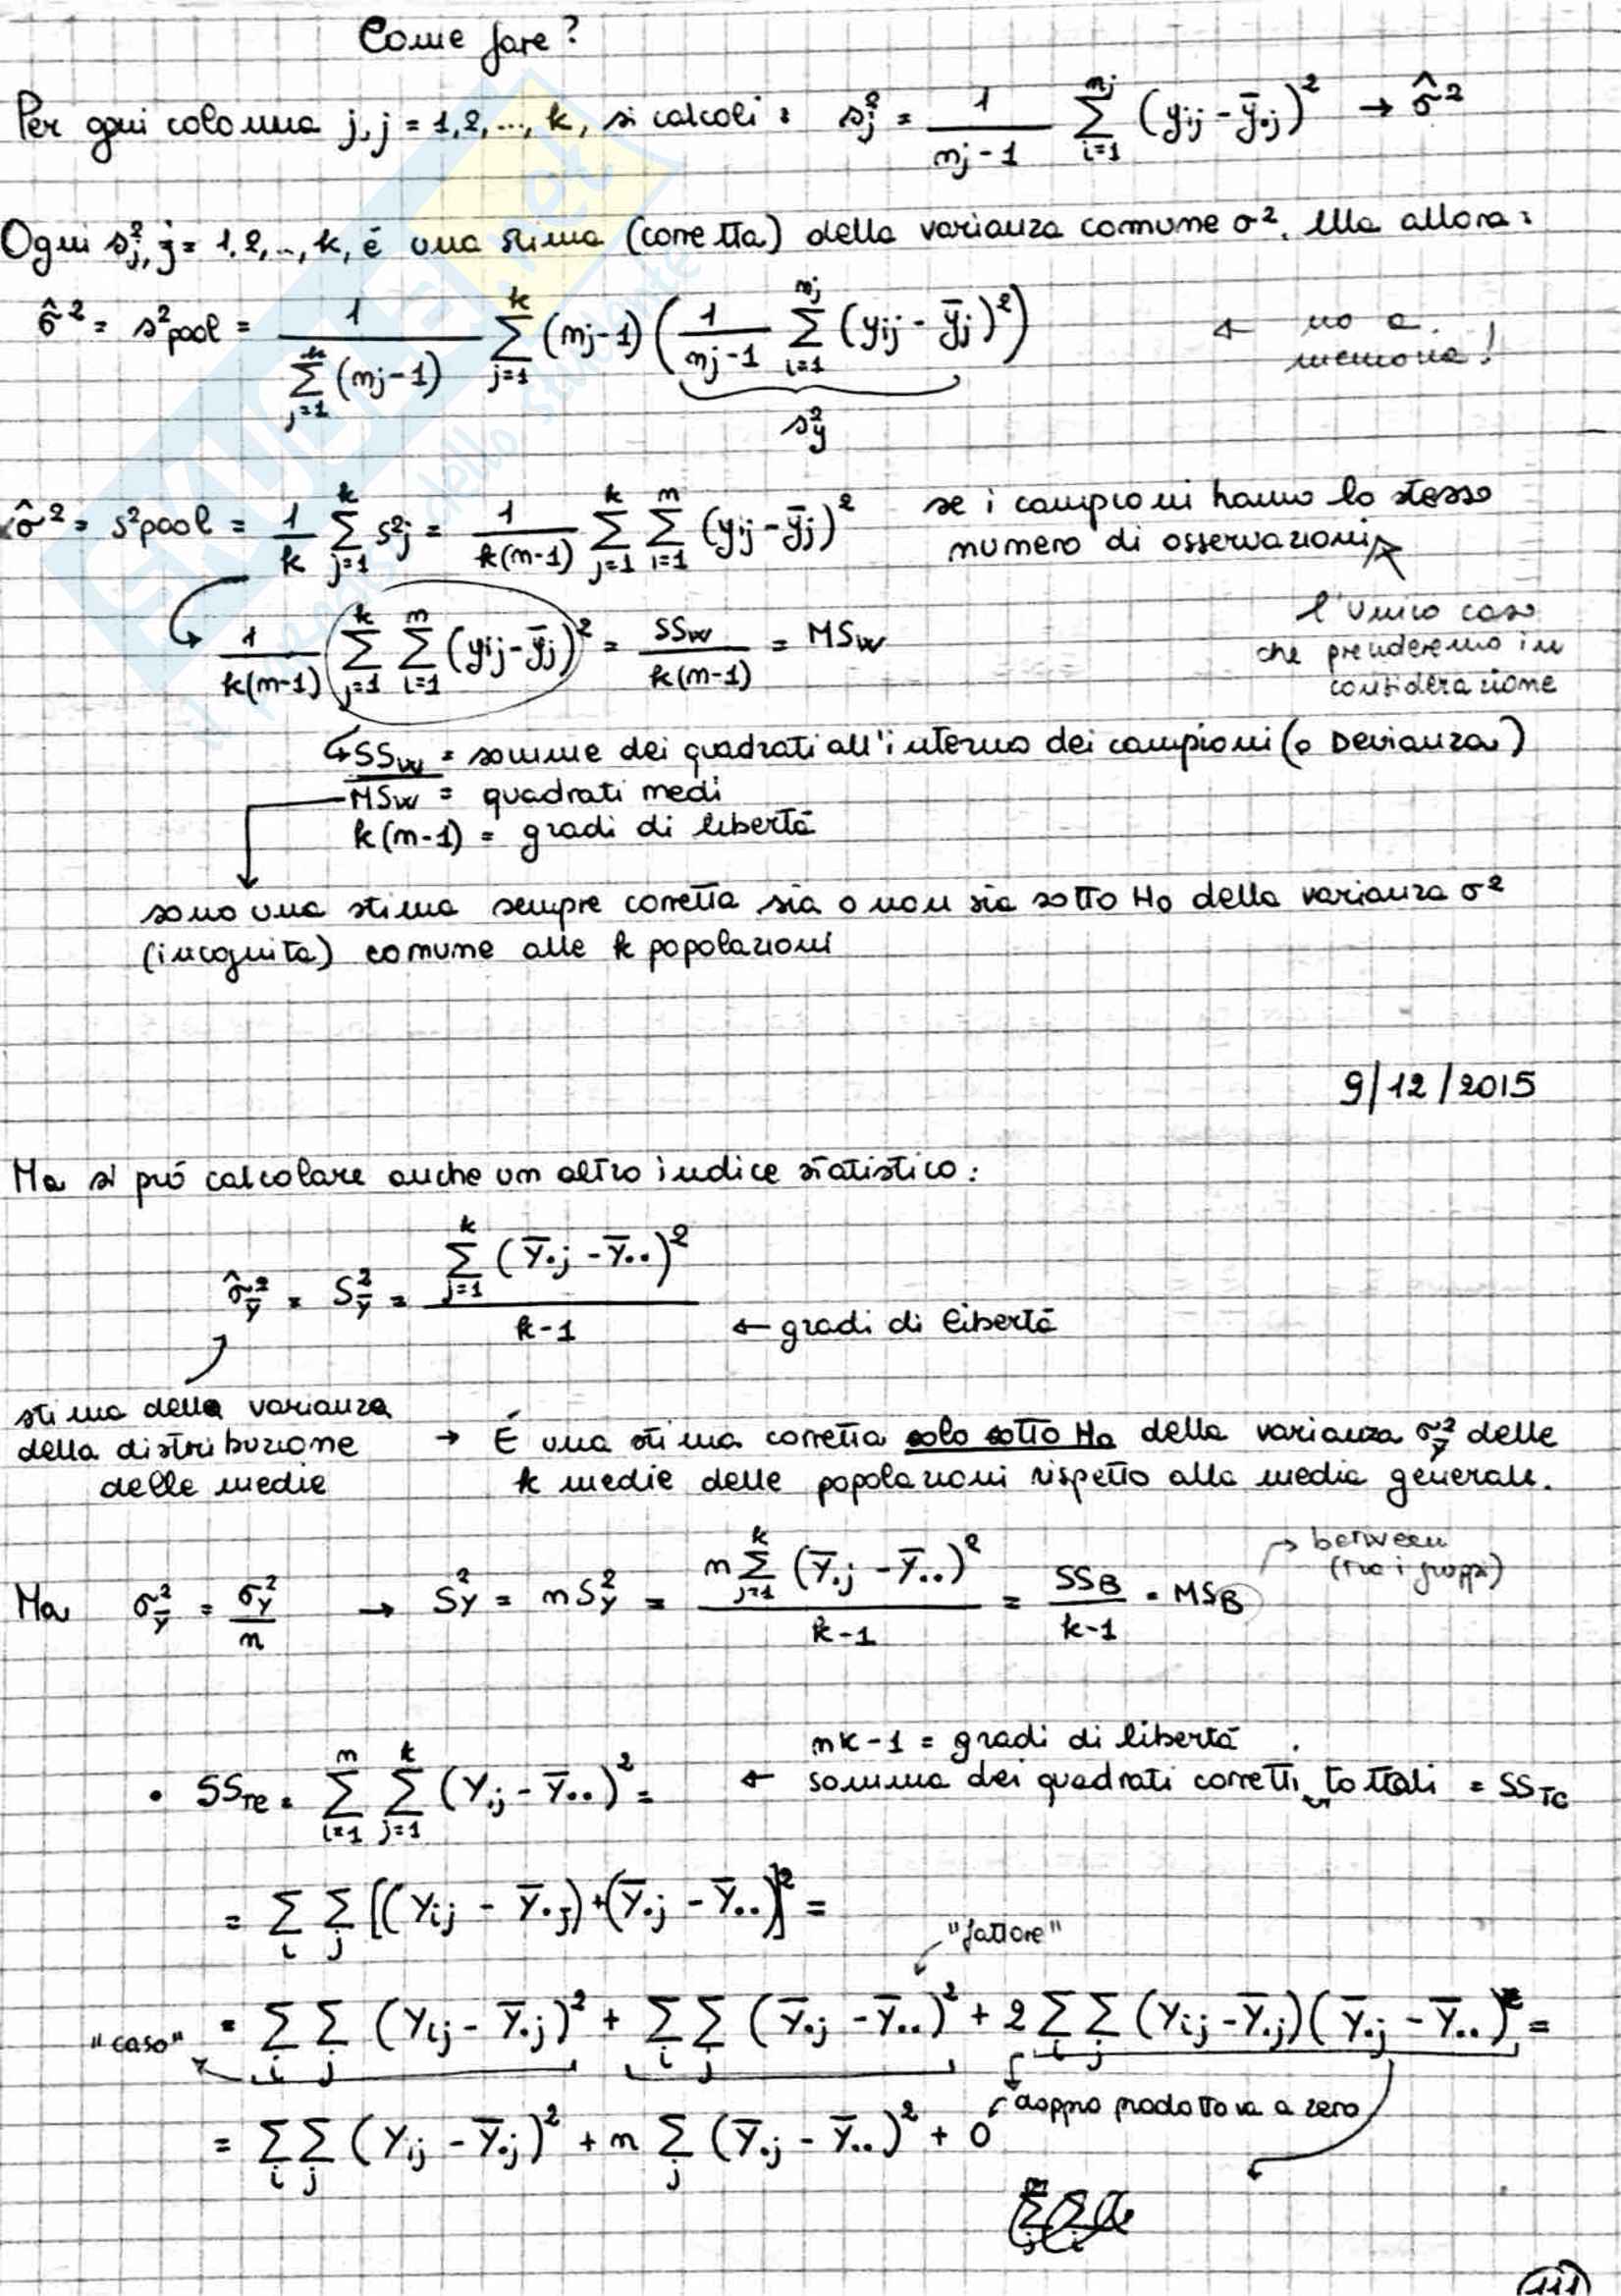 Come fare?
Per ogni colonna j, j = 1,2,..., k, si calcoli : s²j = 1/(nj - 1) Σ_{i=1}^{nj} (yij - ȳ.j)² → σ̂²
Ogni s²j, j = 1,2,..,k, é una stima (corretta) della varianza comune σ². Ma allora :
σ̂² = s²pool = 1/(Σ_{j=1}^{k} (nj-1)) Σ_{j=1}^{k} (nj-1) (1/(nj-1) Σ_{i=1}^{nj} (yij - ȳj)²) ← no a memoria!
s²y
σ̂² = s²pool = 1/k Σ_{j=1}^{k} s²j = 1/(k(n-1)) Σ_{j=1}^{k} Σ_{i=1}^{n} (yij - ȳj)² se i campioni hanno lo stesso
numero di osservazioni
l'unico caso
che prenderemo in
considerazione
1/(k(n-1)) Σ_{j=1}^{k} Σ_{i=1}^{n} (yij - ȳj)² = SSw/(k(n-1)) = MSw
SSw = somme dei quadrati all'interno dei campioni (o Devianza)
MSw = quadrati medi
k(n-1) = gradi di libertá
sono una stima sempre corretta sia o non sia sotto Ho della varianza σ²
(incognita) comune alle k popolazioni
9/12/2015
Ma si puó calcolare anche un altro indice statistico :
σ̂²Ȳ = S²Ȳ = Σ_{j=1}^{k} (Ȳ.j - Ȳ..)² / (k-1) ← gradi di libertá
stima della varianza
della distribuzione
delle medie
→ É una stima corretta solo sotto Ho della varianza σ²Ȳ delle
k medie delle popolazioni rispetto alla media generale.
Ma σ²Ȳ = σ²Y/n → S²Y = nS²Y = n Σ_{j=1}^{k} (Ȳ.j - Ȳ..)² / (k-1) = SSB/(k-1) = MSB
→ between
(tra i gruppi)
nk-1 = gradi di libertá
• SSTC = Σ_{i=1}^{n} Σ_{j=1}^{k} (Yij - Ȳ..)² = ← somma dei quadrati corretti totali = SSTC
= Σi Σj [(Yij - Ȳ.j) + (Ȳ.j - Ȳ..)]² =
"fattore"
"caso" = Σi Σj (Yij - Ȳ.j)² + Σi Σj (Ȳ.j - Ȳ..)² + 2 Σi Σj (Yij - Ȳ.j)(Ȳ.j - Ȳ..) =
doppio prodotto va a zero
= Σi Σj (Yij - Ȳ.j)² + n Σj (Ȳ.j - Ȳ..)² + 0
111
SKUOLA.net